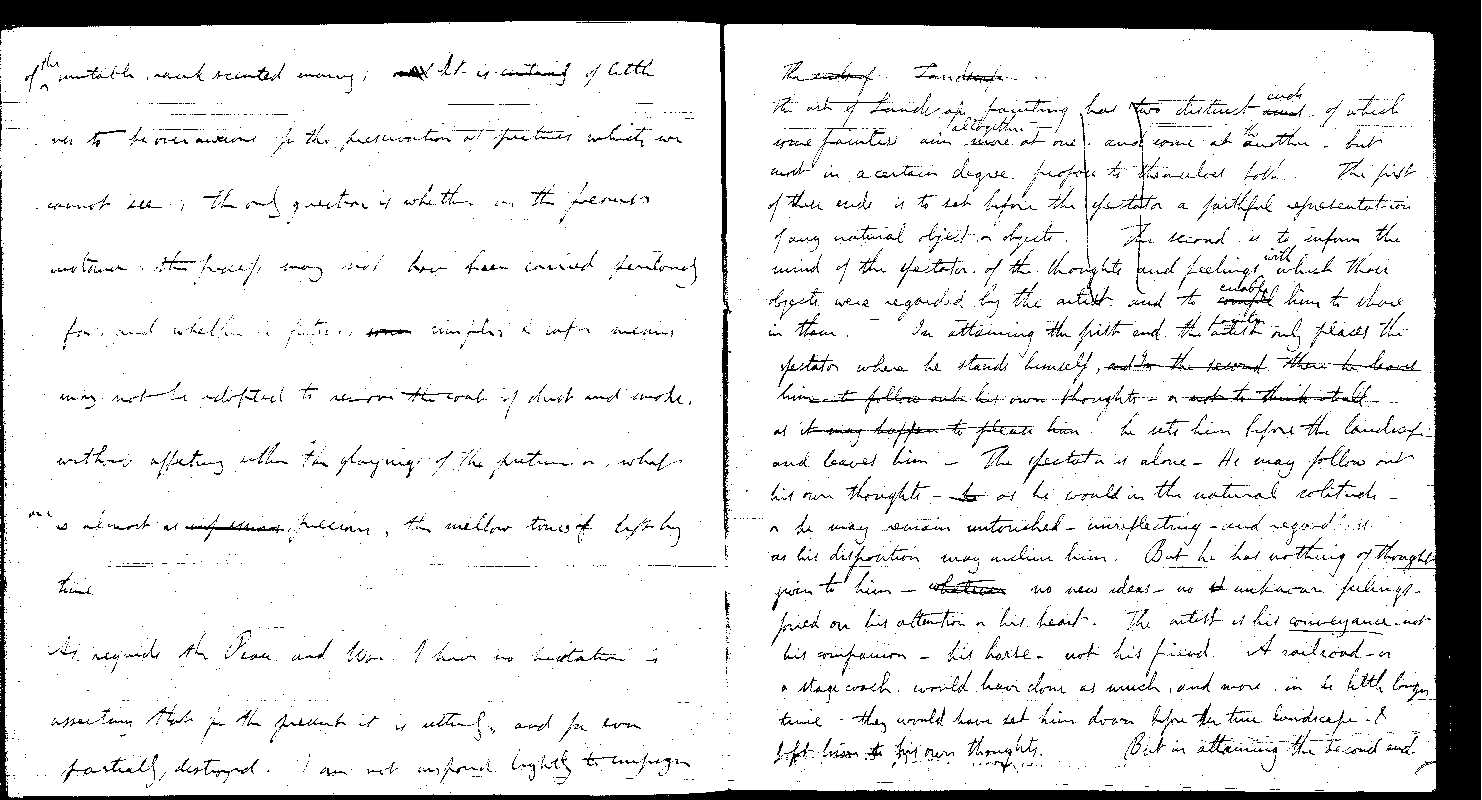 of the mutable, rank scented many; It is certainly of little
use to be over anxious for the preservation of pictures which we
cannot see; the only question is whether in the present
instance the process may not have been carried
far, and whether in future simpler & safer means
may not be adopted to remove the coat of dust and smoke,
without affecting either the glazing of the picture or, what
is almost as precious, the mellow tones left by
time.
As regards the Peace and War I have no hesitation in
asserting that for the present it is utterly, and for ever
partially, destroyed. I am not disposed lightly to impugn
The ends of Landscape
the art of Landscape painting has two distinct ends of which
some painters aim altogether at one and some at the another. but
most in a certain degree propose to themselves both. The first
of these ends is to set before the spectator a faithful representation
of any natural object or objects. The second is to inform the
mind of the spectator of the thoughts and feelings with which these
objects were regarded by the artist, and to enable him to share
in them. In attaining the first end, the artist only places the
spectator where he stands himself, and in the second there he leaves
him to follow out his own thoughts - or not to think at all -
as it may happen to please him. he sets him before the landscape
and leaves him - The spectator is alone - He may follow out
his own thoughts - as he would in the natural solitude -
or he may remain untouched - unreflecting - and regardless
as his disposition may incline him. But he has nothing of thought
given to him - whatever no new ideas - no unknown feelings -
forced on his attention or his heart. The artist is his conveyance - not
his companion - his horse - not his friend. A railroad - or
a stage coach would have done as much, and more in a little longer
time - they would have set him down before the true landscape - &
left him to his own thoughts. But in attaining the second end